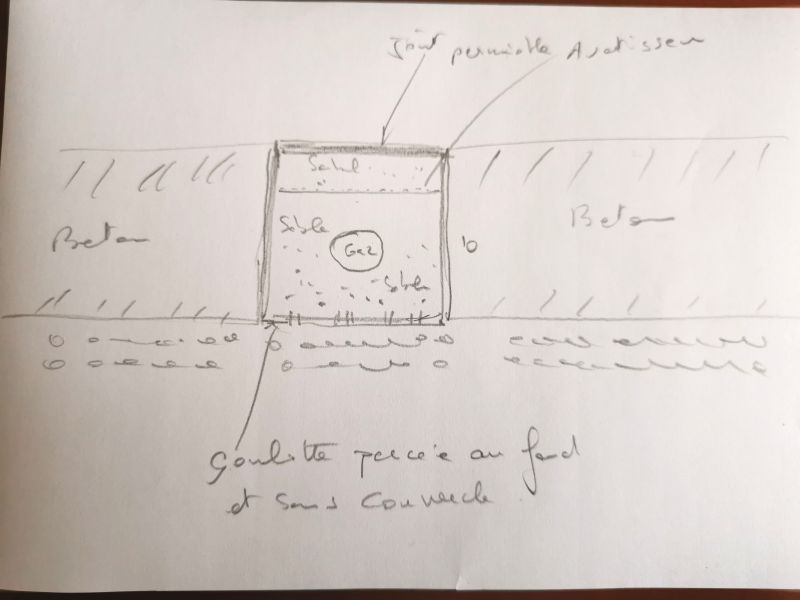 Joint perméable Avertisseur
Sable
Beton
Sable
Gaz
10
Beton
Sable
Goulotte percée au fond
et sans couvercle